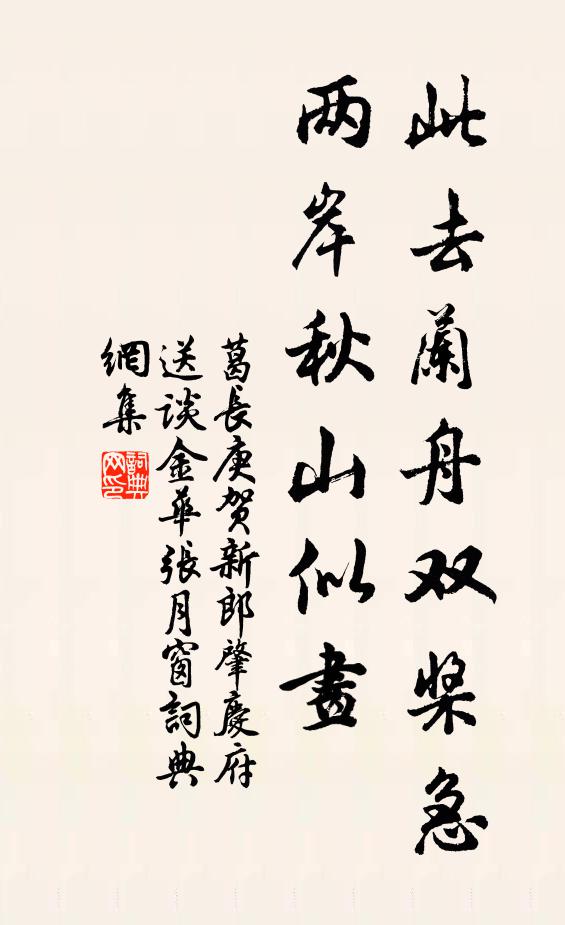 此去蘭舟双桨急
两岸秋山似畫
葛長庚贺新郎肇慶府
送谈金華張月窗詞典
網集
詞典網印